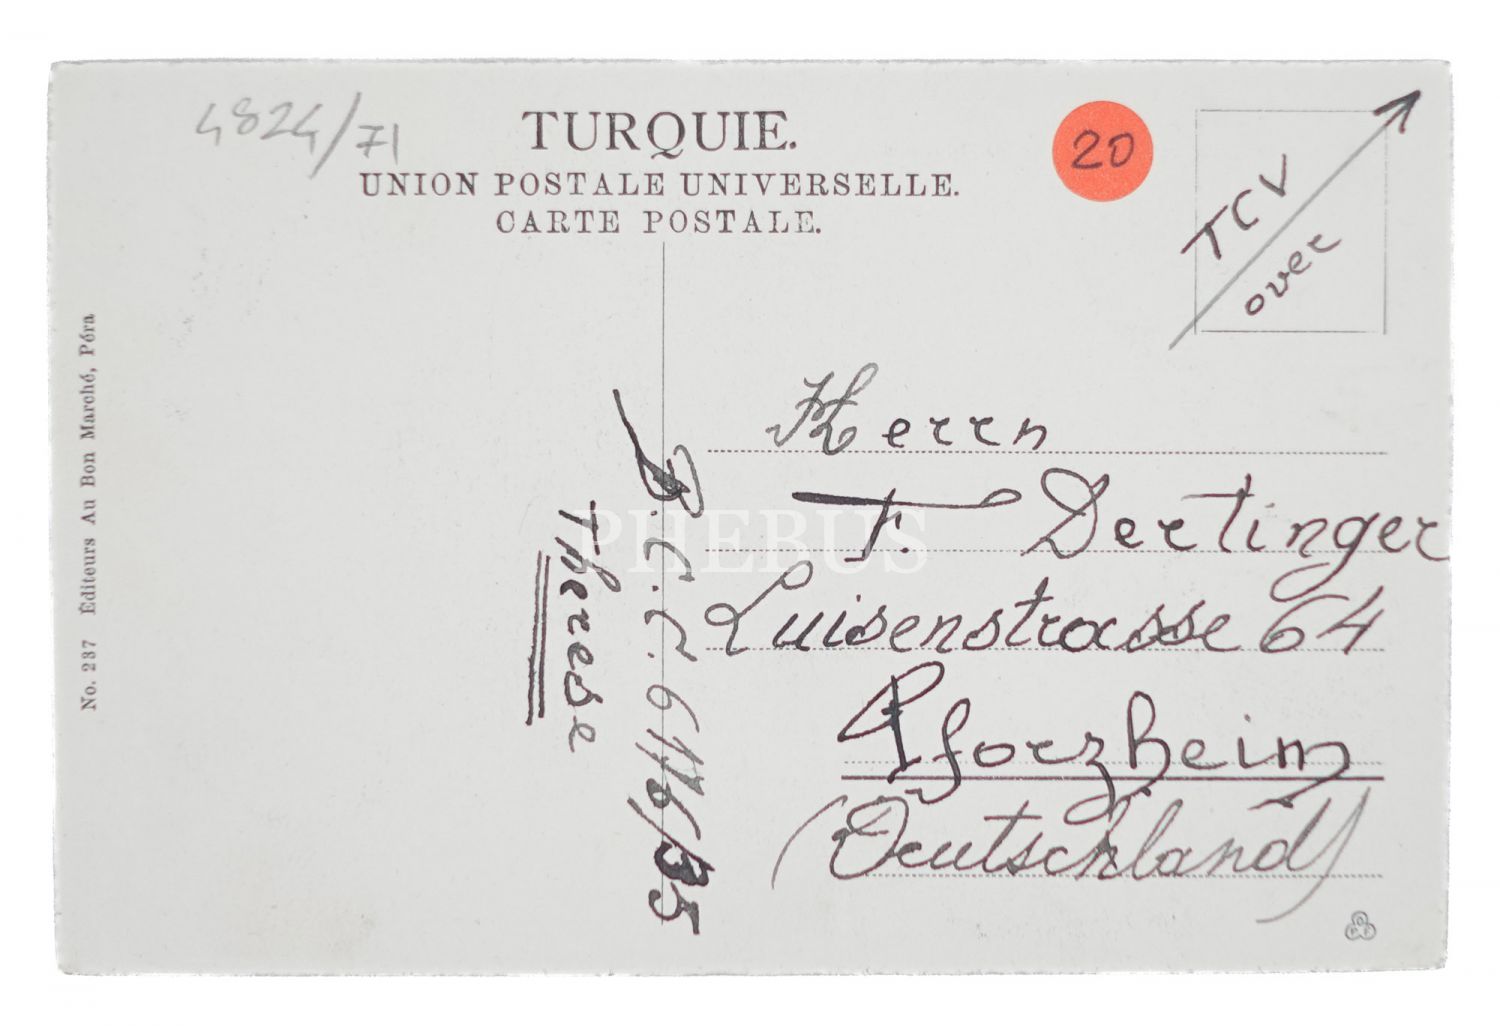 4824/71
TURQUIE.
UNION POSTALE UNIVERSELLE.
CARTE POSTALE.
20
TCV
over
No. 237 Éditeurs Au Bon Marché, Péra
B.C.C. 6176/35
Therese
Herrn
F. Dertinger
Luisenstrasse 64
Pforzheim
(Deutschland)
PHEBUS